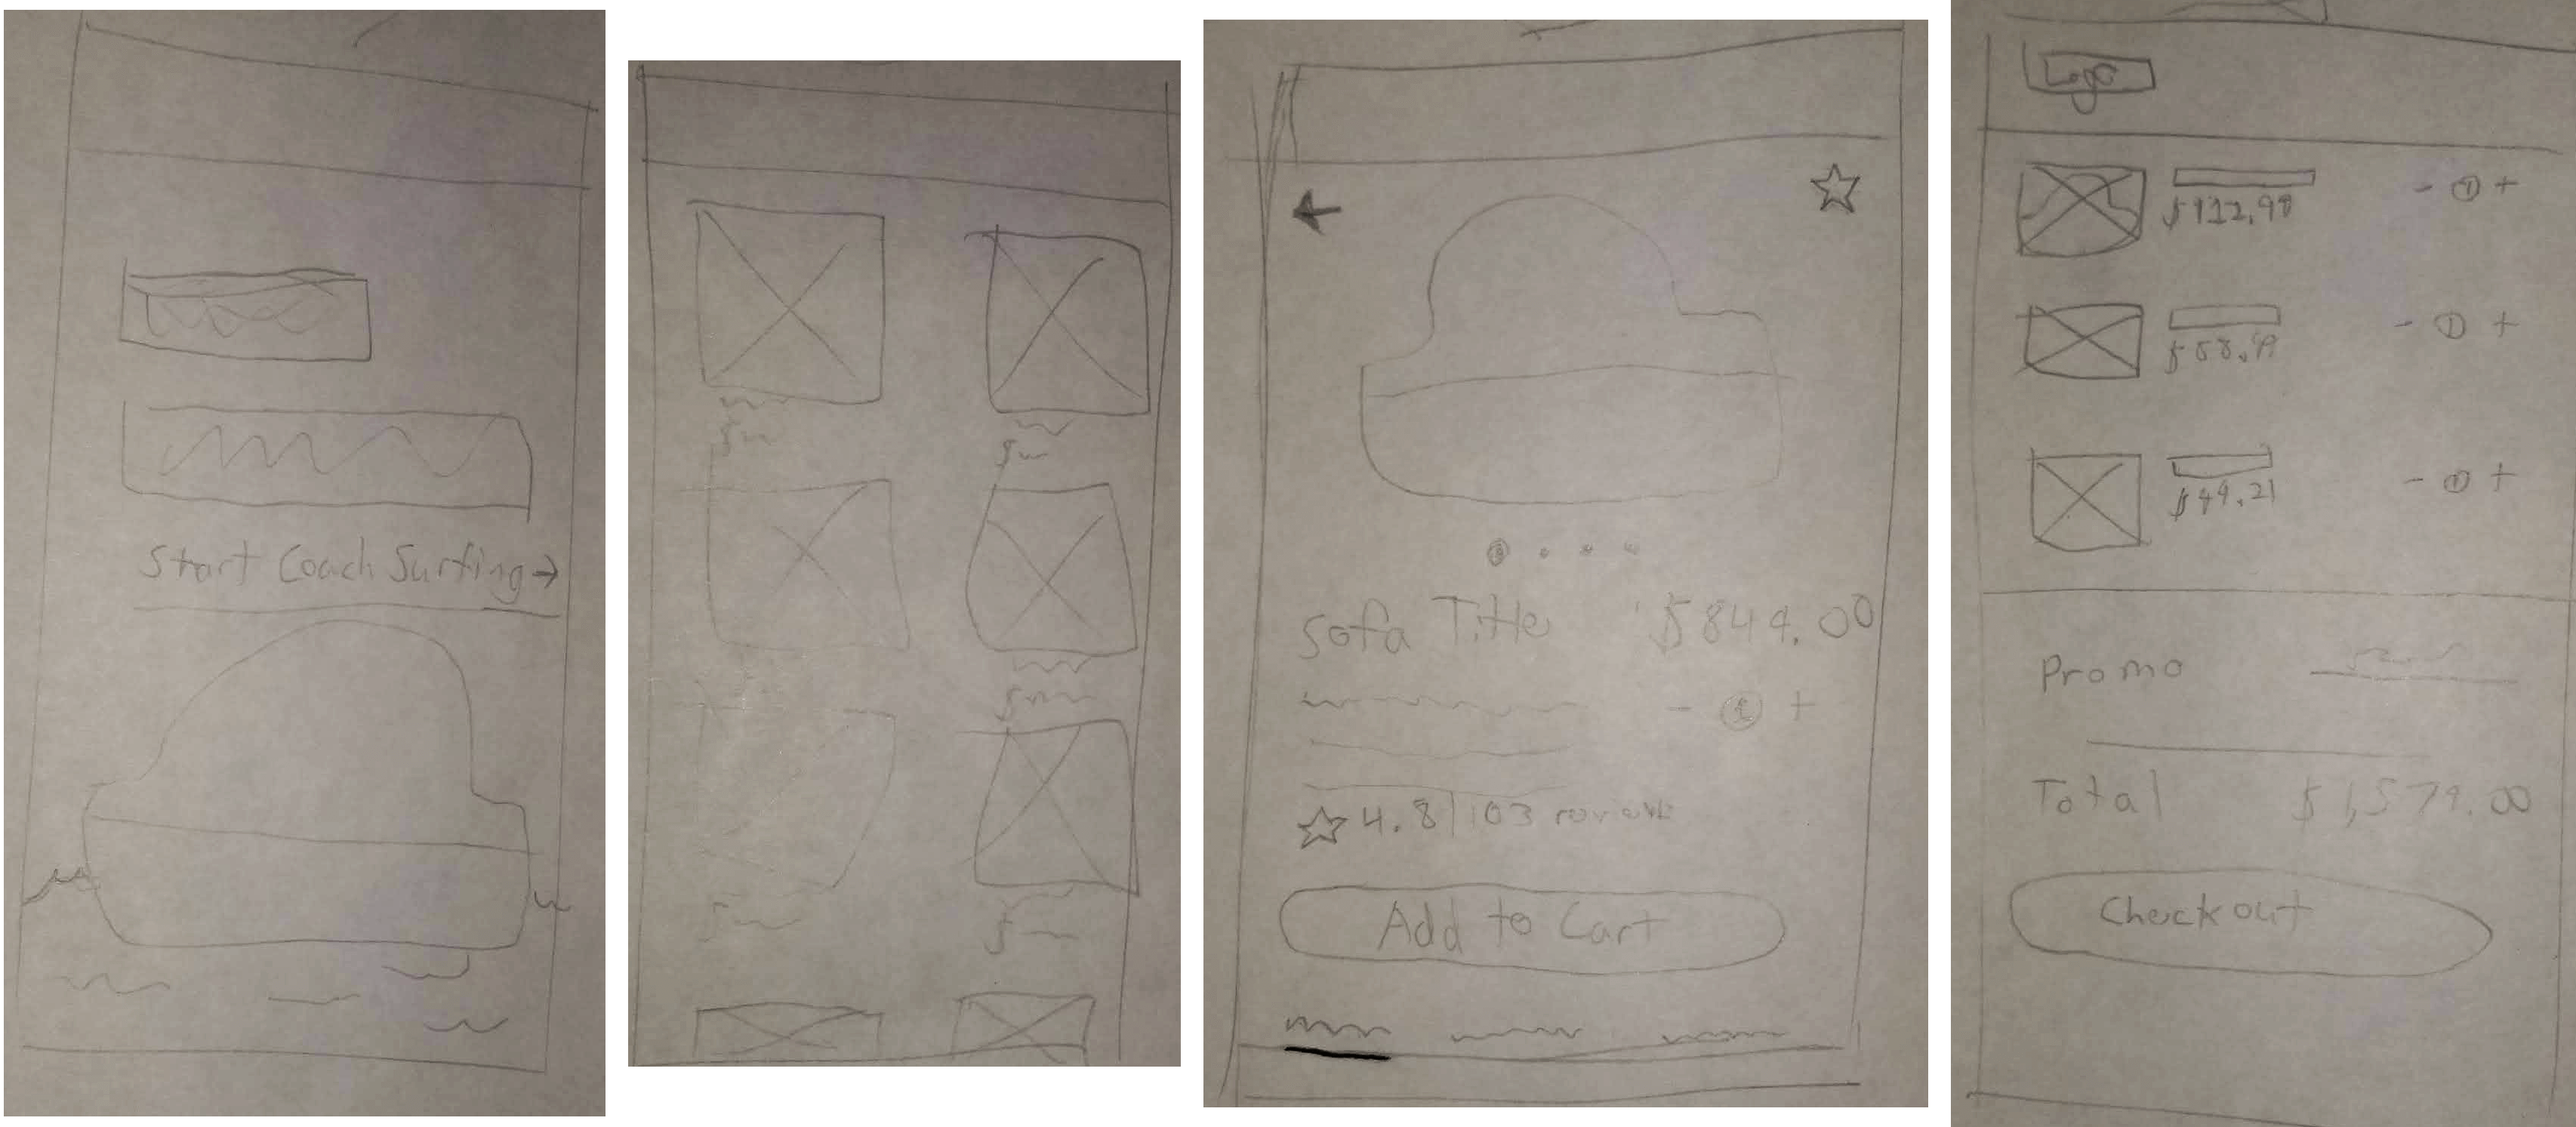 Start Coach Surfing →
Sofa Title $849.00
- 1 +
4.8 | 103 reviews
Add to Cart
Logo
- 1 +
$112.98
- 1 +
- 1 +
$49.21
Promo
Total $1,579.00
Checkout